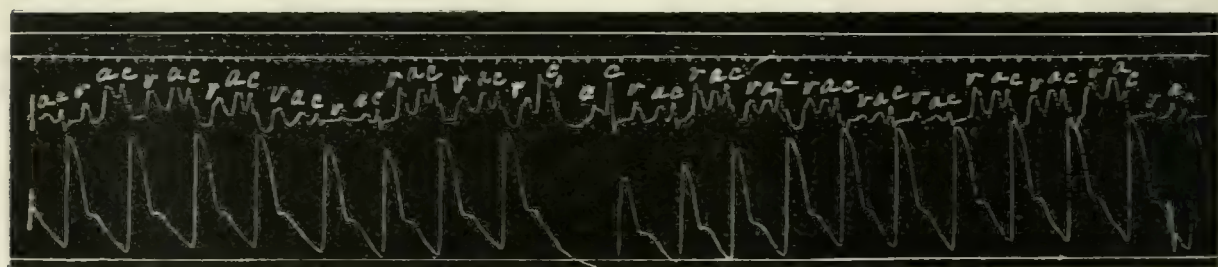 ac v ac v ac v ac v a c v ac v ac v ac v c a c v ac v ac v a c v ac v ac v ac v ac v ac v a c v a